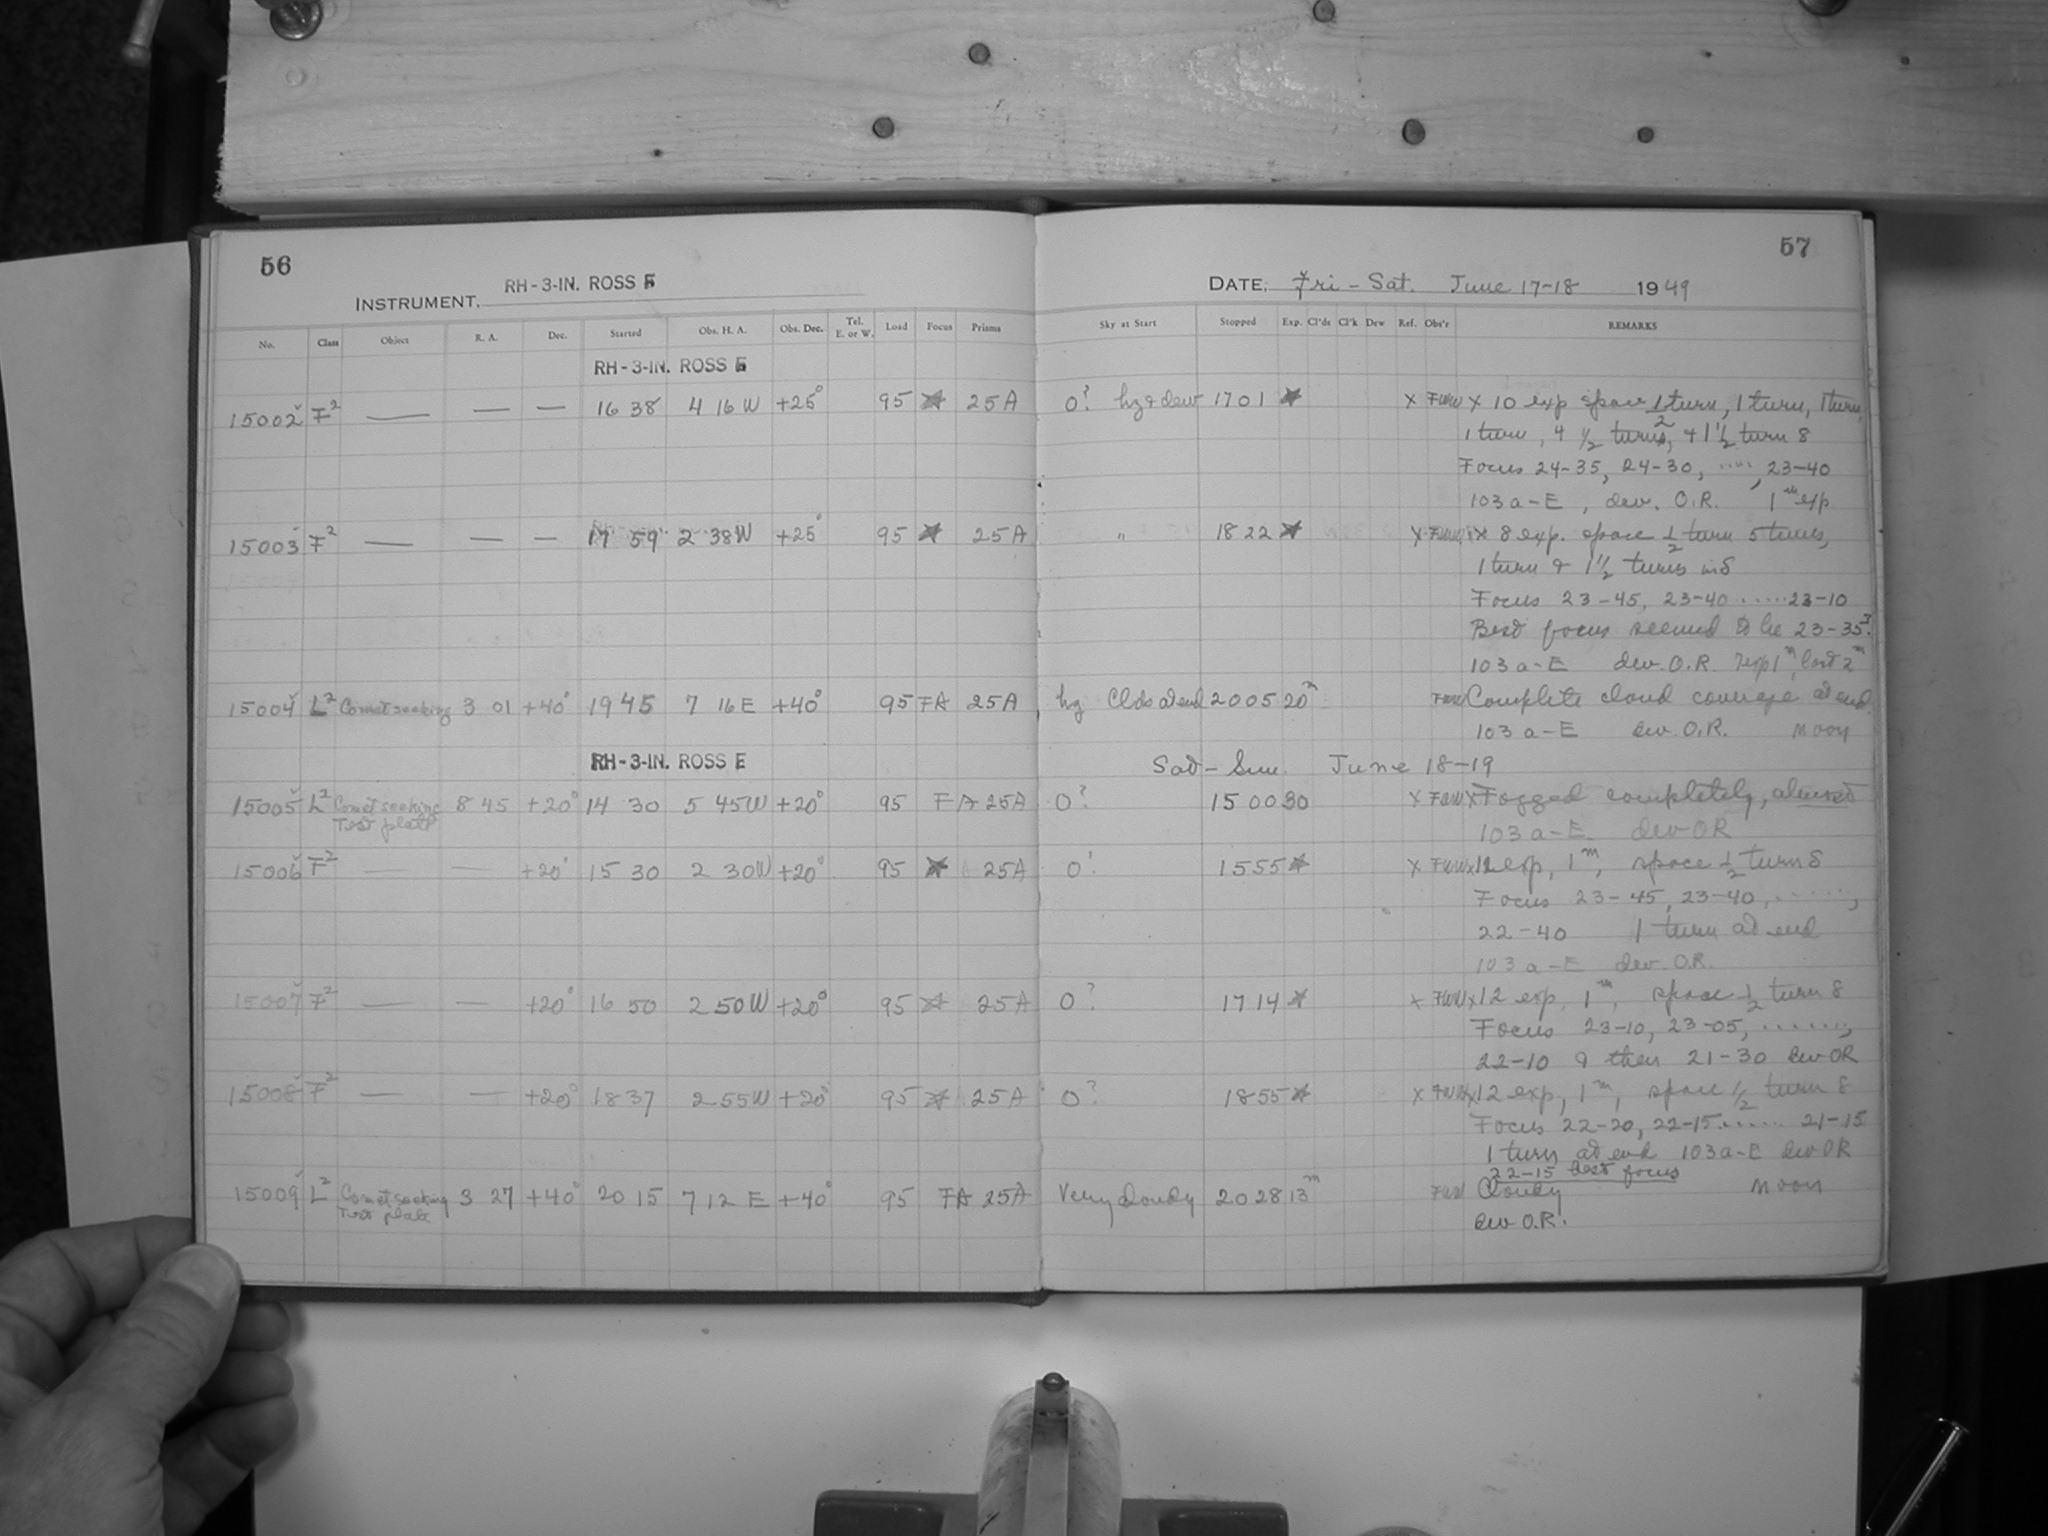 56
RH-3-IN. ROSS E
INSTRUMENT,
No. Class Object R. A. Dec. Started Obs. H. A. Obs. Dec. Tel. E. or W. Load Focus Prisms
RH-3-IN. ROSS E
15002 F2 — — — 16 38 4 16 W +25° 95 25 A
15003 F2 — — — 17 59 2 38 W +25° 95 25 A
15004 L2 Comet seeking 3 01 +40° 19 45 7 16 E +40° 95 FA 25 A
RH-3-IN. ROSS E
15005 L2 Comet seeking 8 45 +20° 14 30 5 45 W +20° 95 FA 25 A
Test plate
15006 F2 — — +20° 15 30 2 30 W +20° 95 25 A
15007 F2 — — +20° 16 50 2 50 W +20° 95 25 A
15008 F2 — — +20° 18 37 2 55 W +20° 95 25 A
15009 L2 Comet seeking 3 27 +40° 20 15 7 12 E +40° 95 FA 25 A
Test plate
57
DATE, Fri - Sat. June 17-18 1949
Sky at Start Stopped Exp. Cl'ds Cl'k Dew Ref. Obs'r REMARKS
0? hz & dew 17 01 x x 10 exp space 1/2 turn, 1 turn, 1 turn,
1 turn, 4 1/2 turns, + 1 1/2 turn S
Focus 24-35, 24-30, ....., 23-40
103a-E, dev. O.R. 1m exp
" 18 22 x x 8 exp. space 1/2 turn 5 times,
1 turn & 1 1/2 turns in S
Focus 23-45, 23-40 ......23-10
Best focus seemed to be 23-35?
103a-E dev. O.R. 7 exp 1m, last 2m
hz Clds at end 20 05 20m Complete cloud coverage at end.
103a-E dev. O.R. Moon
Sat - Sun. June 18-19
0? 15 00 30 x x Fogged completely, almost
103a-E dev OR
0? 15 55 x x 12 exp, 1m, space 1/2 turn S
Focus 23-45, 23-40, ......,
22-40 1 turn at end
103a-E dev. O.R.
0? 17 14 x x 12 exp, 1m, space 1/2 turn S
Focus 23-10, 23-05, .......,
22-10 & then 21-30 dev OR
0? 18 55 x x 12 exp, 1m, space 1/2 turn S
Focus 22-20, 22-15...... 21-15
1 turn at end 103a-E dev OR
22-15 best focus
Very cloudy 20 28 13m Cloudy Moon
dev O.R.